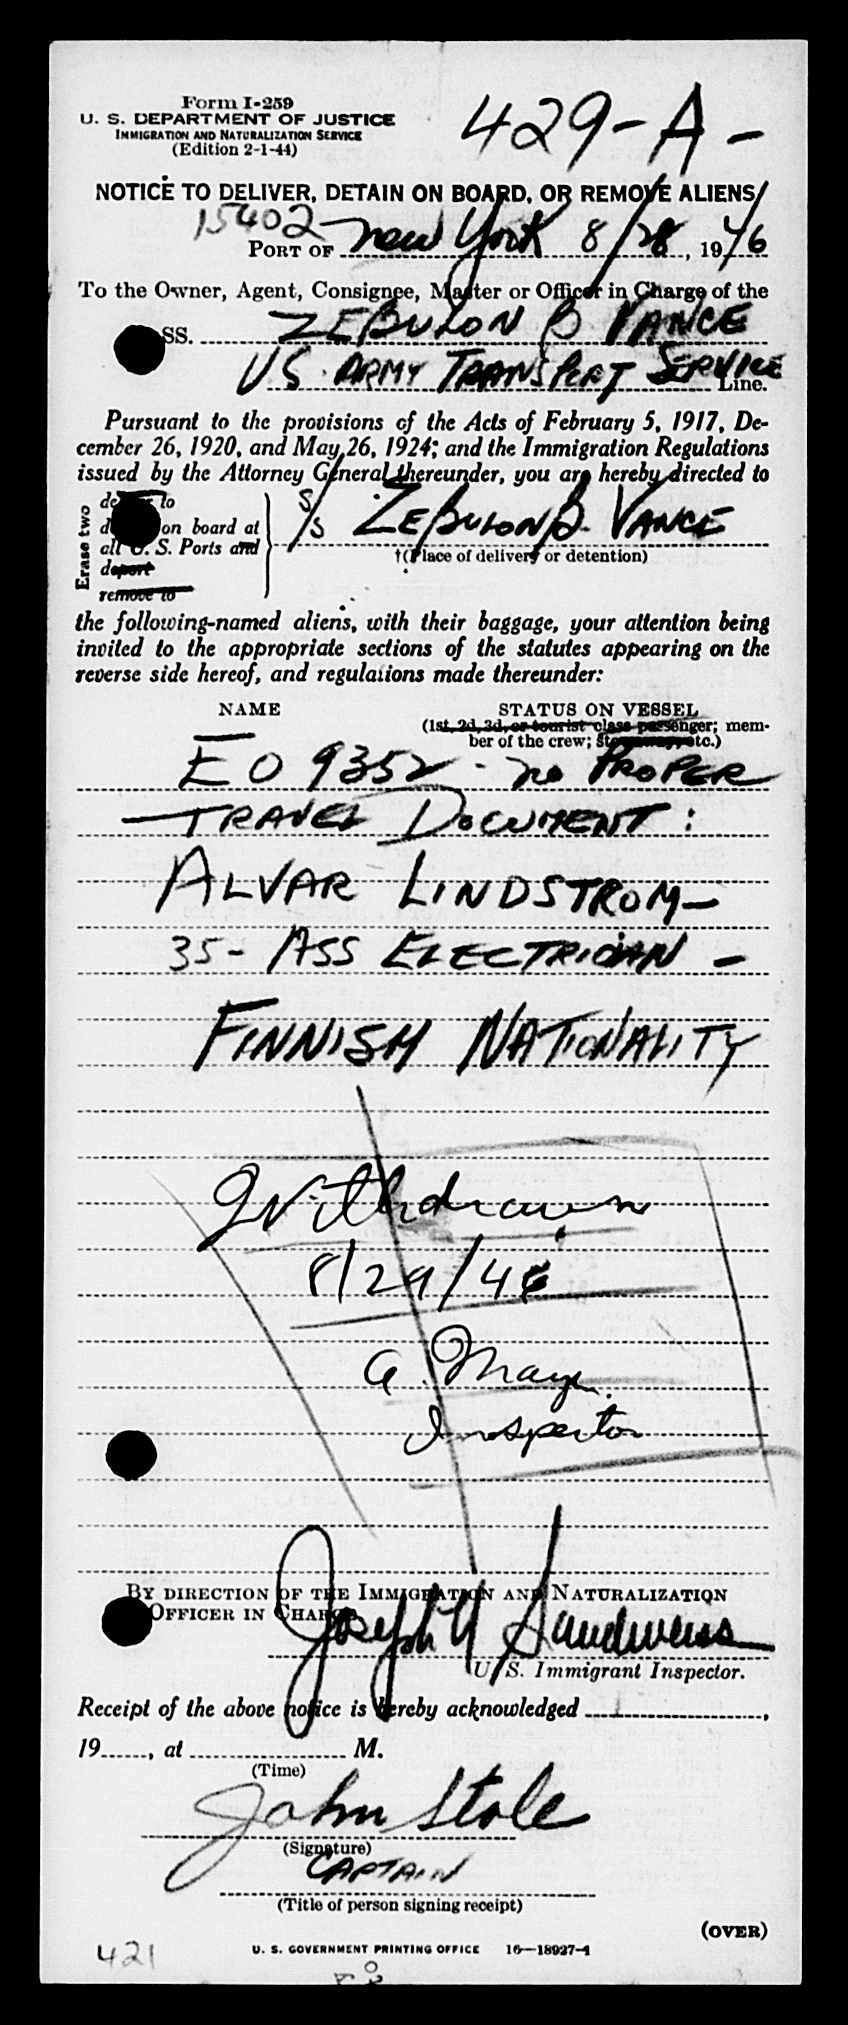 Form I-259
U. S. DEPARTMENT OF JUSTICE
IMMIGRATION AND NATURALIZATION SERVICE
(Edition 2-1-44)
429-A-
NOTICE TO DELIVER, DETAIN ON BOARD, OR REMOVE ALIENS
15402
PORT OF New York 8/28, 1946
To the Owner, Agent, Consignee, Master or Officer in Charge of the
SS. ZEBULON B VANCE
US. ARMY TRANSPORT SERVICE Line.
Pursuant to the provisions of the Acts of February 5, 1917, De-
cember 26, 1920, and May 26, 1924; and the Immigration Regulations
issued by the Attorney General thereunder, you are hereby directed to
Erase two
to
on board at
all U. S. Ports and
deport
remove to
S/S ZEBULON B. VANCE
†(Place of delivery or detention)
the following-named aliens, with their baggage, your attention being
invited to the appropriate sections of the statutes appearing on the
reverse side hereof, and regulations made thereunder:
NAME STATUS ON VESSEL
(1st, 2d, 3d, or tourist class passenger; mem-
ber of the crew; etc.)
EO 9352 - no PROPER
TRAVEL DOCUMENT:
ALVAR LINDSTROM-
35- ASS ELECTRICIAN -
FINNISH NATIONALITY
Withdrawn
8/29/46
a. Mayer
Inspector
BY DIRECTION OF THE IMMIGRATION AND NATURALIZATION
OFFICER IN CHARGE
Joseph
U. S. Immigrant Inspector.
Receipt of the above notice is hereby acknowledged ,
19 , at M.
(Time)
John Stole
(Signature)
CAPTAIN
(Title of person signing receipt)
(OVER)
421
U. S. GOVERNMENT PRINTING OFFICE 16—18927-1